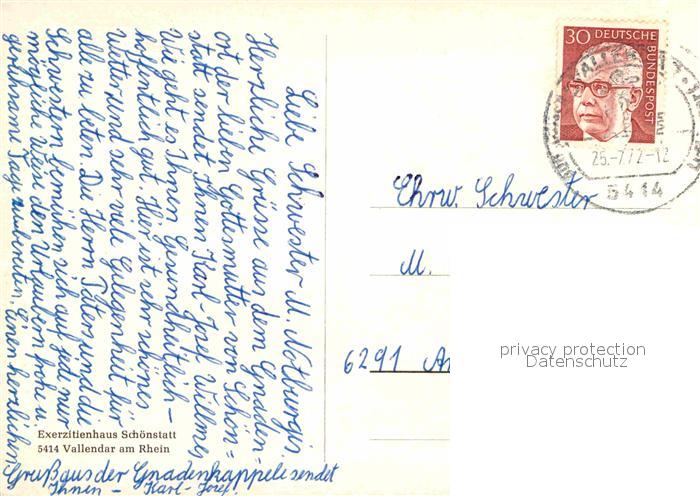 Liebe Schwester M. Notburgis.
Herzliche Grüsse aus dem Gnaden=
ort der lieben Gottesmutter von Schön=
statt sendet Ihnen Karl-Josef Willmes,
Wie geht es Ihnen Gesundheitlich –
hoffentlich gut. Hier ist sehr schönes
Wetter und sehr viele Gelegenheit für
alle zu beten. Die Herrn Pater und die
Schwestern bemühen sich auf jede nur
mögliche Weise den Urlaubern frohe u.
Tage zubereiten. Einen herzlichen
Gruß aus der Gnadenkappele sendet
Ihnen – Karl-Josef.
Exerzitienhaus Schönstatt
5414 Vallendar am Rhein
30 DEUTSCHE
BUNDESPOST
26.-7.72-12
5414
Ehrw. Schwester
M.
6291
privacy protection
Datenschutz